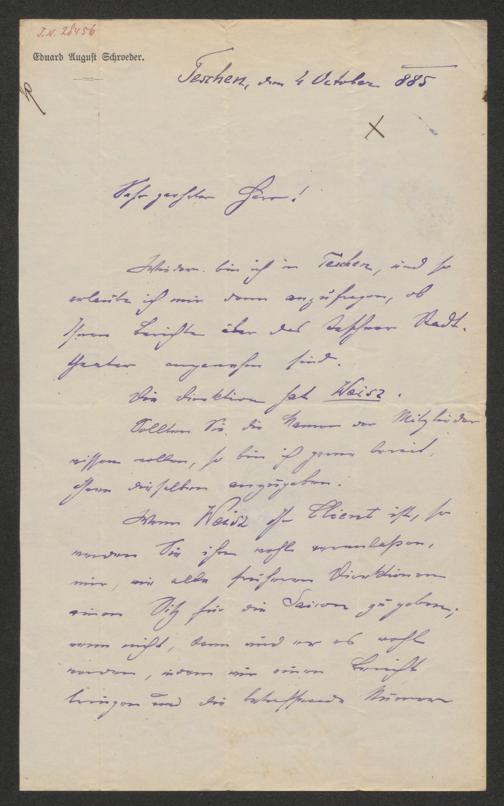 J.N. 28456
Eduard August Schroeder.
Teschen, den 4 October 885
Sehr geehrter Herr!
Wieder bin ich in Teschen, und so
erlaube ich mir denn anzufragen, ob
Ihnen Berichte über das Teschner Stadt-
theater angenehm sind.
Die Direktion hat Weisz.
Sollten Sie die Namen der Mitglieder
wissen wollen, so bin ich gerne bereit,
Ihnen dieselben anzugeben.
Wenn Weisz Ihr Client ist, so
werden Sie ihn wohl veranlaßen,
mir, wie alle früheren Direktionen
einen Sitz für die Saison zu geben;
wenn nicht, dann wird er es wohl
werden, wenn wir einen Bericht
bringen und die betreffende Nummer